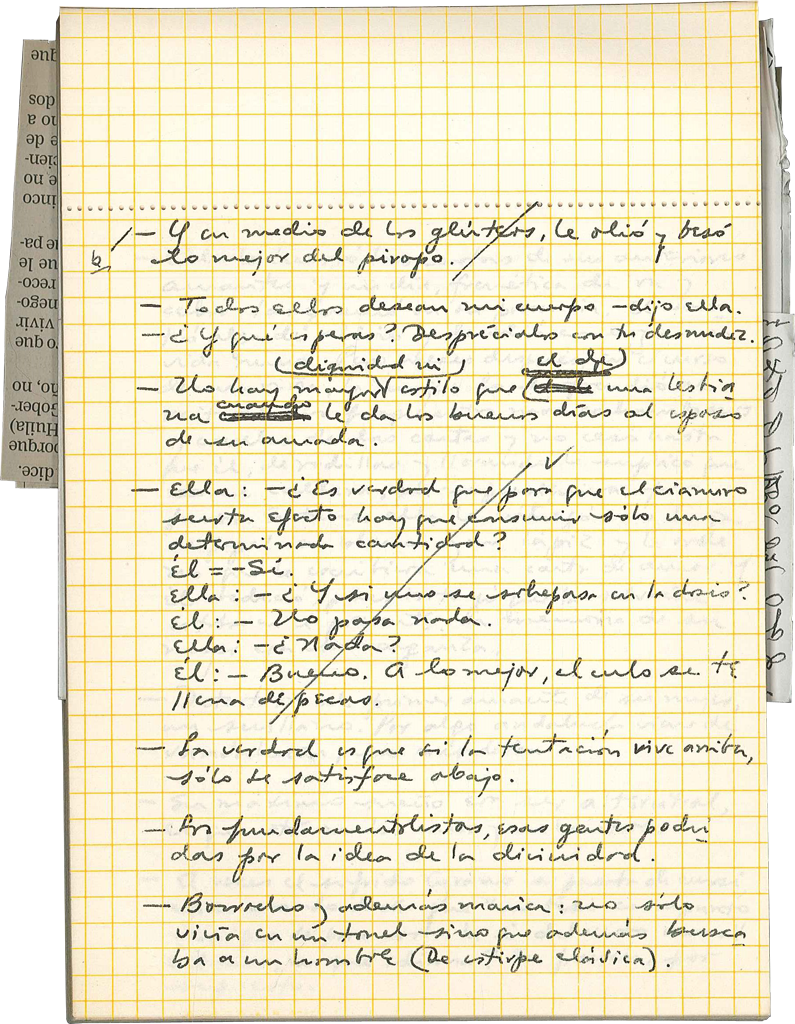 — Y en medio de los glúteos, le olió y besó
b/ lo mejor del piropo.
— Todos ellos desean mi cuerpo —dijo ella.
— ¿Y qué esperas? Desprécialos con tu desnudez.
(dignidad ni) el de)
— No hay mayor estilo que ( una bestia
na cuando le da los buenos días al esposo
de su amada.
— Ella: —¿Es verdad que para que el cianuro
surta efecto hay que consumir sólo una
determinada cantidad?
Él = —Sí.
Ella: —¿Y si uno se sobrepasa en la dosis?
Él: — No pasa nada.
Ella: —¿Nada?
Él: — Bueno. A lo mejor, el culo se te
llena de pecas.
— La verdad es que si la tentación vive arriba,
sólo se satisface abajo.
— Los fundamentalistas, esas gentes podri
das por la idea de la divinidad.
— Borracho y además marica: no sólo
vivía en un tonel sino que además busca
ba a un hombre (De estirpe clásica).
que
dos
no a
e de
cien-
e no
cinco
ue pa-
que le
reco-
nego-
vivir
ro que
ño, no
Gober-
(Huila)
porque
dice.